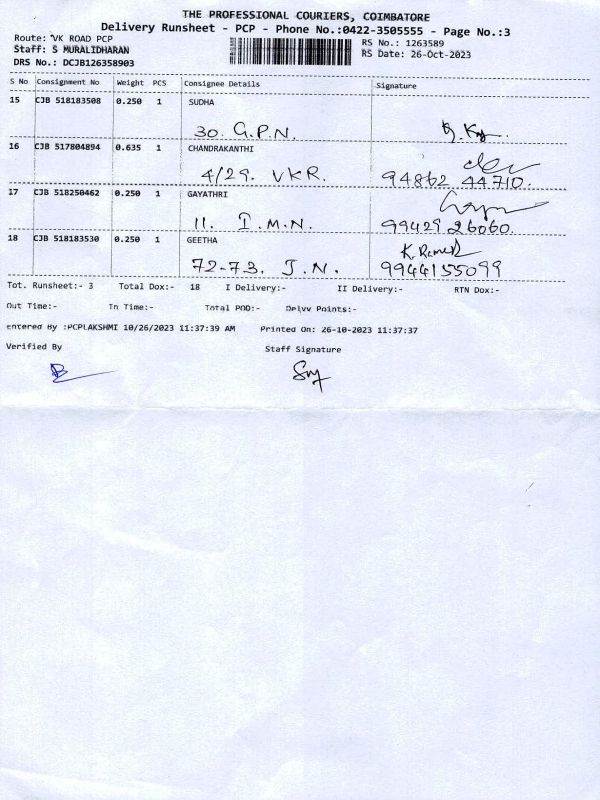 THE PROFESSIONAL COURIERS, COIMBATORE
Delivery Runsheet - PCP - Phone No.:0422-3505555 - Page No.:3
Route: VK ROAD PCP
RS No.: 1263589
Staff: S MURALIDHARAN
RS Date: 26-Oct-2023
DRS No.: DCJB126358903
S No Consignment No Weight PCS Consignee Details Signature
15 CJB 518183508 0.250 1 SUDHA
30. G.P.N.
16 CJB 517804894 0.635 1 CHANDRAKANTHI
4/29. VKR. 94862 44710.
17 CJB 518250462 0.250 1 GAYATHRI
11. I.M.N. 99429 26060.
18 CJB 518183530 0.250 1 GEETHA
72-73. J.N. 9944155099
Tot. Runsheet:- 3 Total Dox:- 18 I Delivery:- II Delivery:- RTN Dox:-
Out Time:- In Time:- Total POD:- Delvv Points:-
Entered By :PCPLAKSHMI 10/26/2023 11:37:39 AM Printed On: 26-10-2023 11:37:37
Verified By Staff Signature